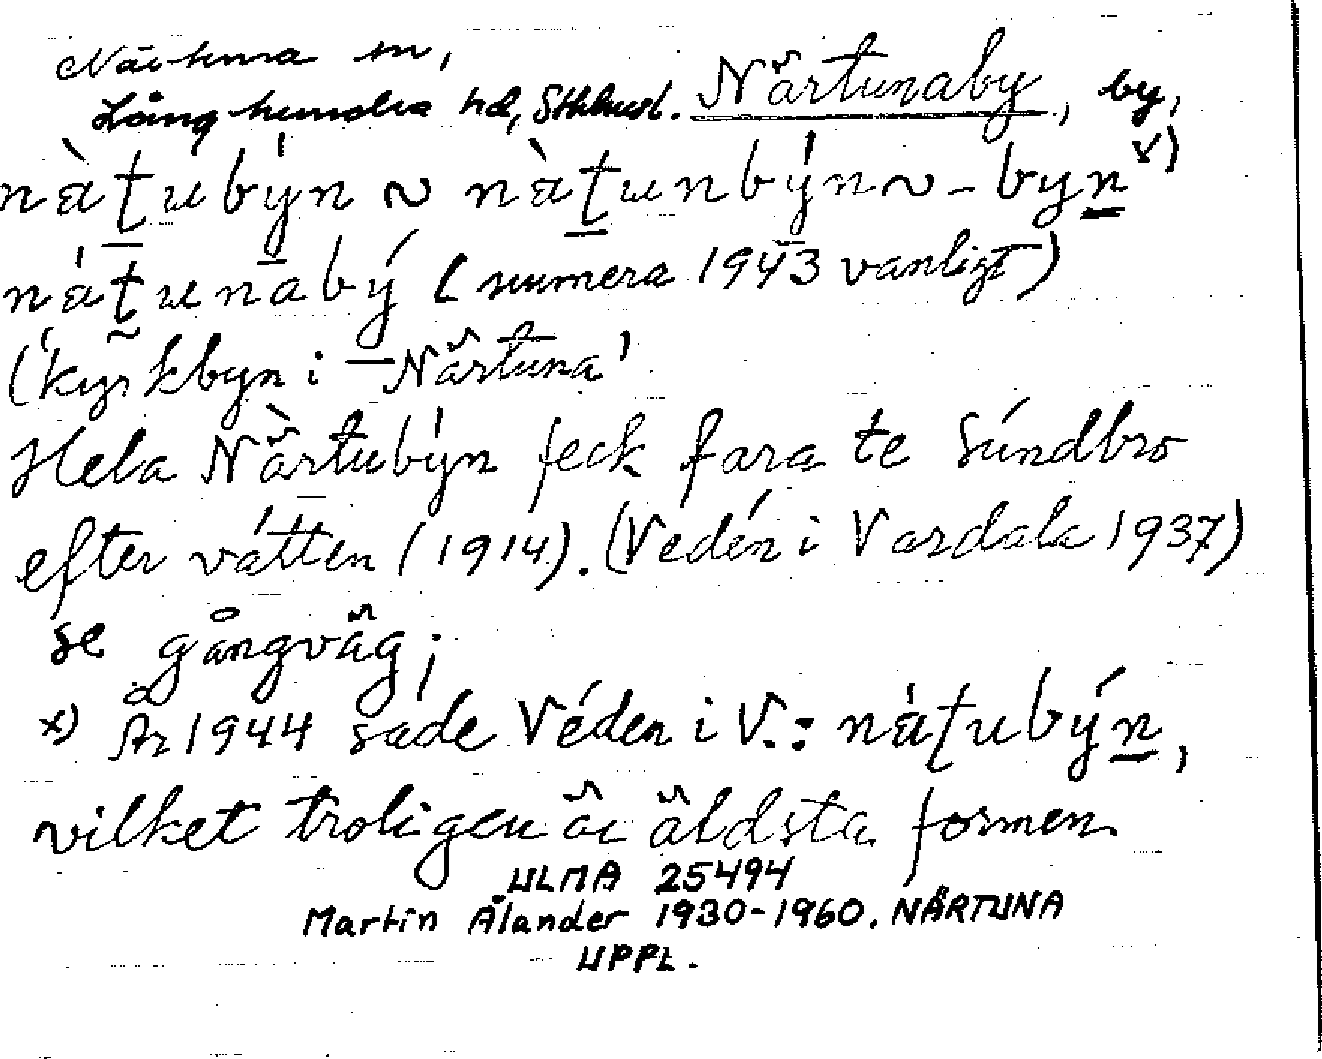 Närtuna sn,
Långhundra hd, Sthlmsl. Närtunaby, by,
nà̱ṯubýn ~ nàṯunbýn ~ -byn x)
náṯunabý (numera 1943 vanligt)
(kyrkbyn i Närtuna
Hela Närtubyn feck fara te Súndbro
efter vátten (1914). (Vedén i Vardala 1937)
se gångväg;
x) År 1944 sade Véden i V.: náṯubýn,
vilket troligen är äldsta formen.
ULMA 25494
Martin Ålander 1930-1960. NÄRTUNA
UPPL.